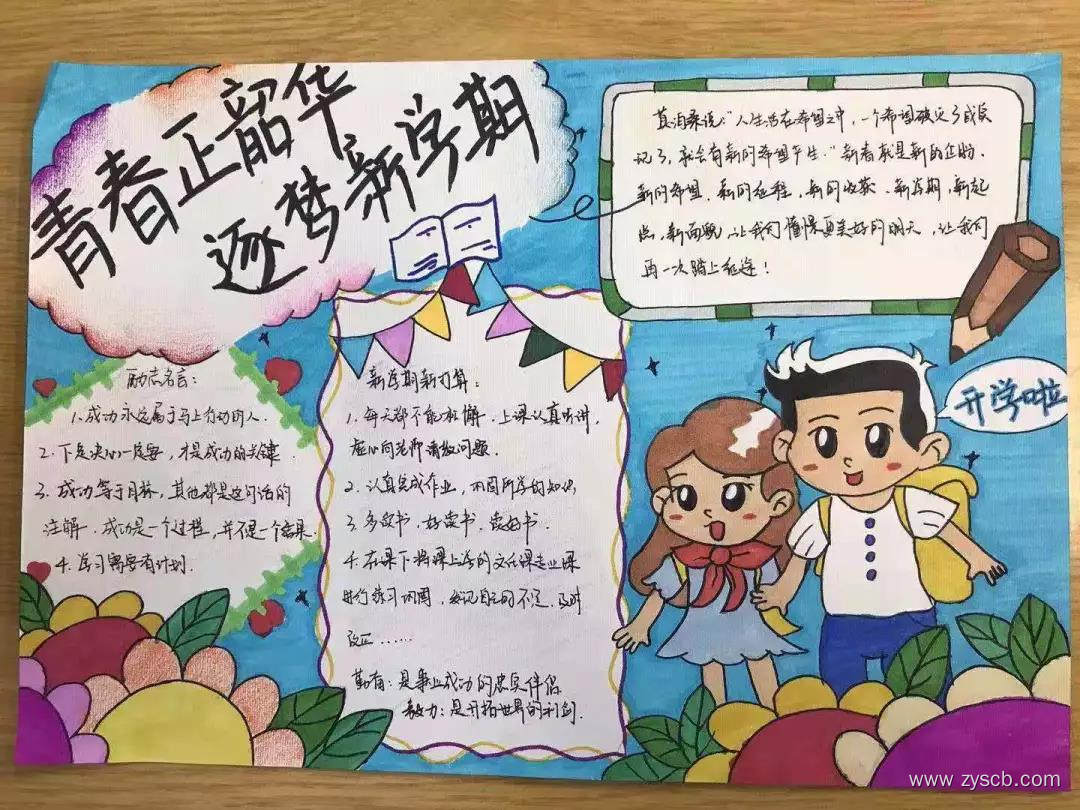 青春正韶华
逐梦新学期
莫泊桑说:“人生活在希望之中,一个希望破灭了或实
现了,就会有新的希望产生。”新春就是新的企盼、
新的希望、新的征程、新的收获。新学期,新起
点,新面貌,让我们憧憬更美好的明天,让我们
再一次踏上征途!
开学啦
励志名言:
1.成功永远属于马上行动的人.
2.下定决心一定要,才是成功的关键.
3.成功等于目标,其他都是这句话的
注解.成功是一个过程,并不是一个结果.
4.学习需要有计划.
新学期新打算:
1.每天都不能松懈,上课认真听讲,
虚心向老师请教问题.
2.认真完成作业,巩固所学的知识
3.多读书、好读书、读好书.
4.在课下将课上学的文化课专业课
进行练习巩固,处记自己的不足,及时
改正……
勤奋:是事业成功的忠实伴侣
毅力:是开拓世界的利剑.
www.zyscb.com